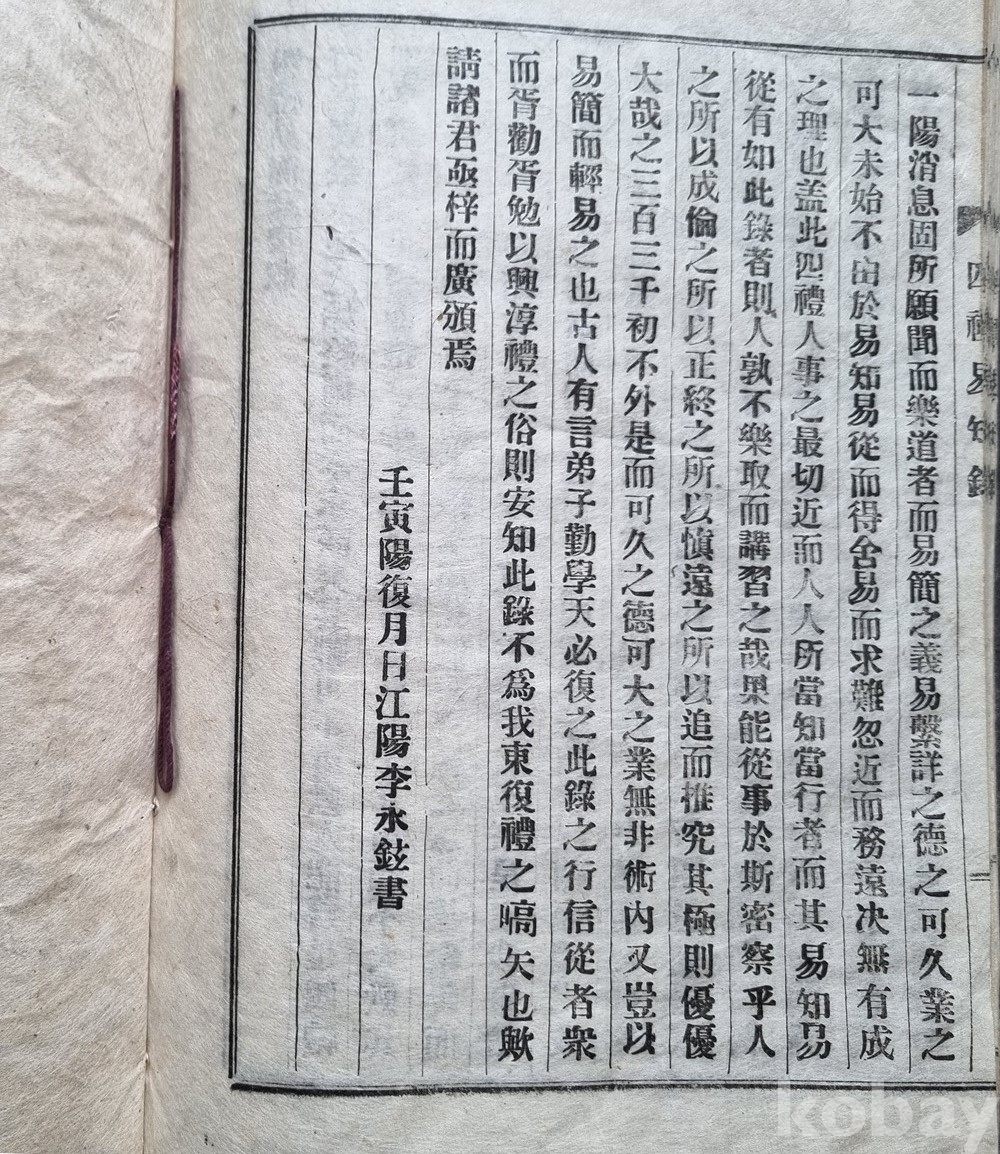 四禮易知錄
二
一陽消息固所願聞而樂道者而易簡之義易繫詳之德之可久業之
可大未始不由於易知易從而得舍易而求難忽近而務遠决無有成
之理也盖此四禮人事之最切近而人人所當知當行者而其易知易
從有如此錄者則人孰不樂取而講習之哉果能從事於斯密察乎人
之所以成倫之所以正終之所以愼遠之所以追而推究其極則優優
大哉之三百三千初不外是而可久之德可大之業無非術內又豈以
易簡而輕易之也古人有言弟子勤學天必復之此錄之行信從者衆
而胥勸胥勉以興淳禮之俗則安知此錄不爲我東復禮之嚆矢也歟
請諸君亟梓而廣頒焉
壬寅陽復月日江陽李永鉉書
kobay